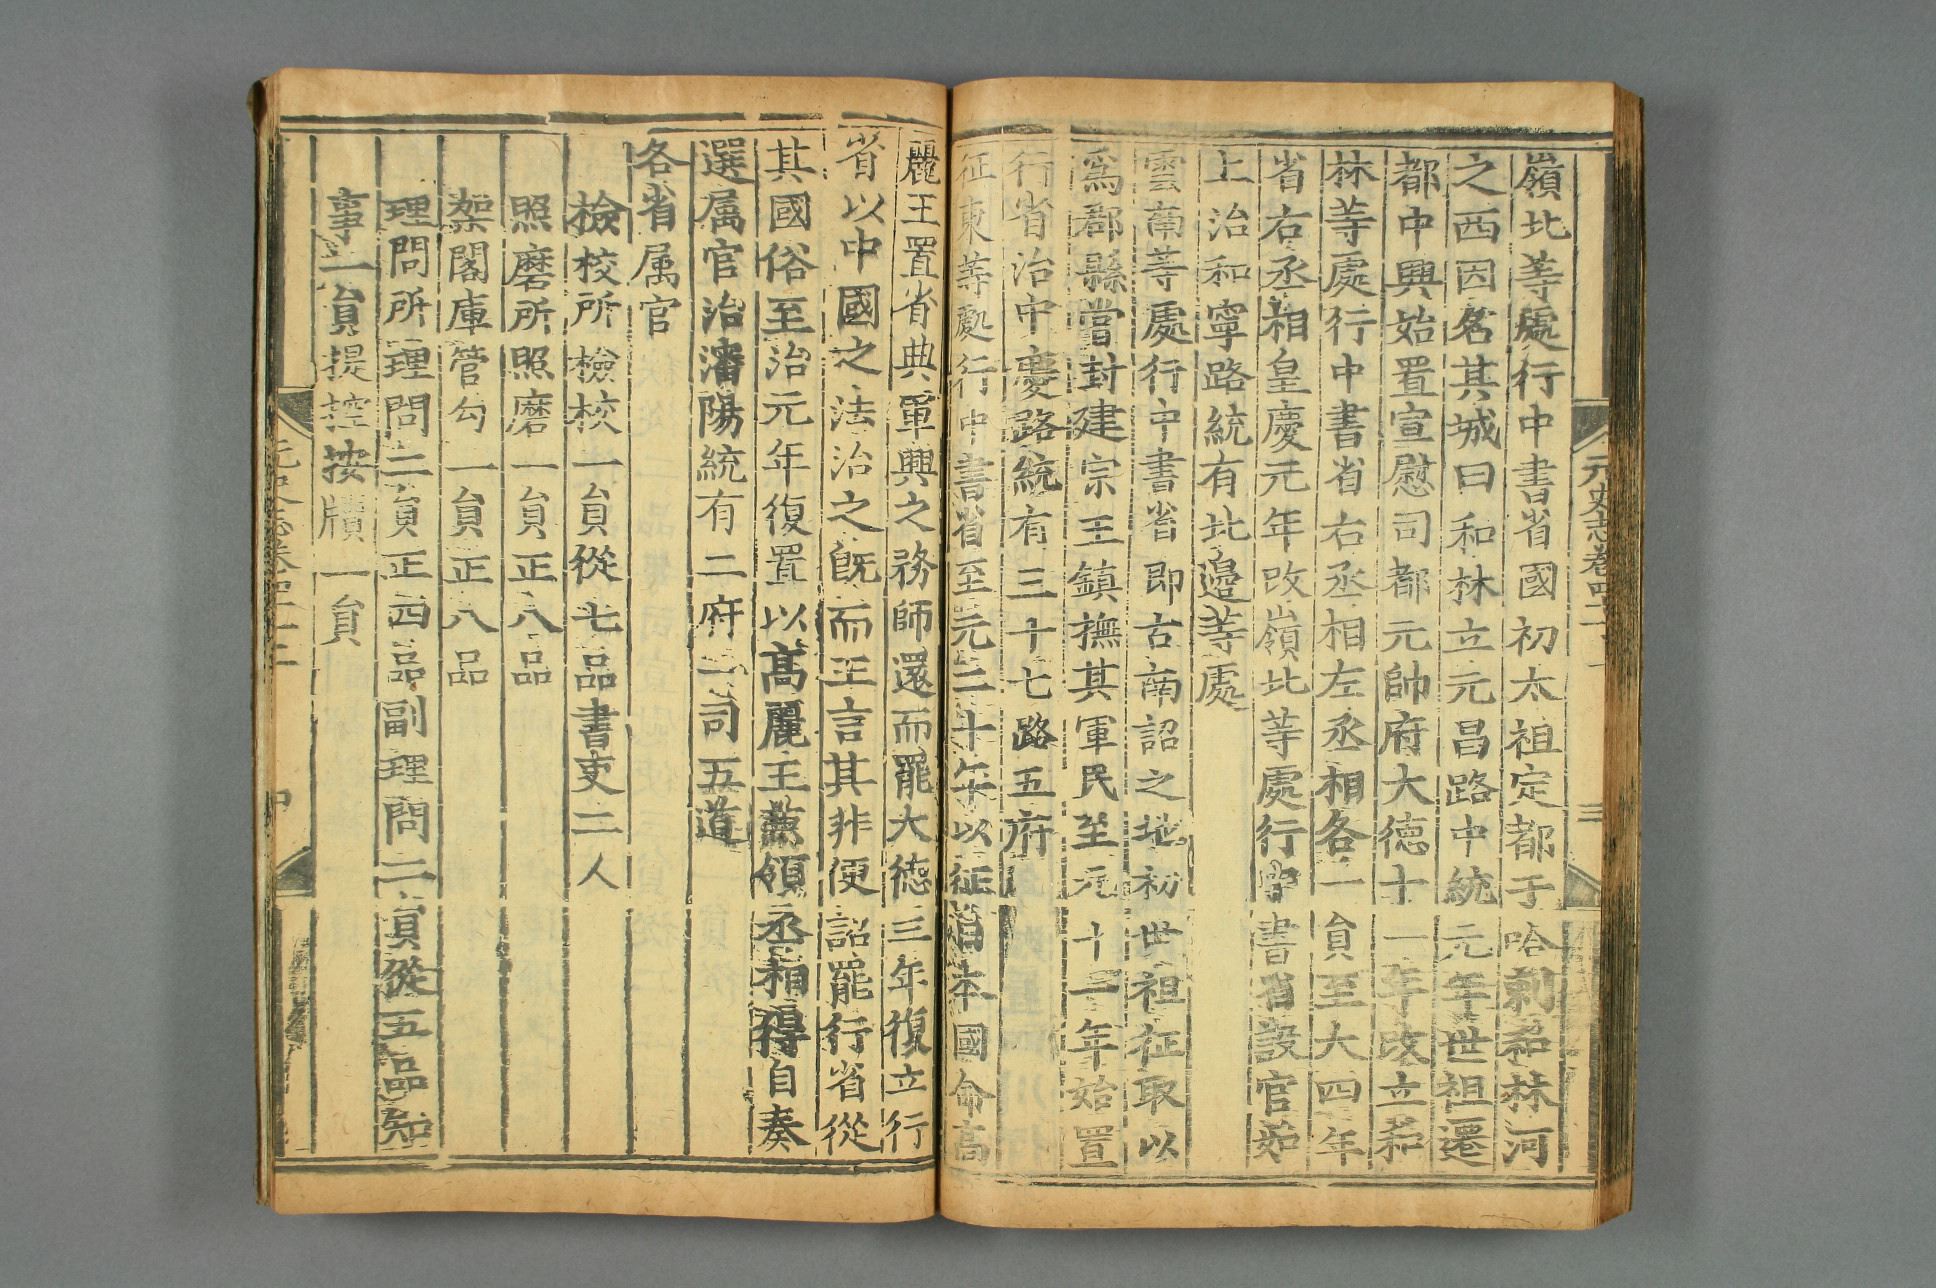 元史志卷四十一
三
嶺北等處行中書省國初太祖定都于哈剌和林河
之西因名其城曰和林立元昌路中統元年世祖遷
都中興始置宣慰司都元帥府大德十一年改立和
林等處行中書省右丞相左丞相各一員至大四年
省右丞相皇慶元年改嶺北等處行中書省設官如
上治和寧路統有北邊等處
雲南等處行中書省即古南詔之地初世祖征取以
為郡縣嘗封建宗王鎮撫其軍民至元十一年始置
行省治中慶路統有三十七路五府
征東等處行中書省至元二十年以征日本國命高
麗王置省典軍興之務師還而罷大德三年復立行
省以中國之法治之既而王言其非便詔罷行省從
其國俗至治元年復置以高麗王兼領丞相得自奏
選属官治瀋陽統有二府一司五道
各省属官
檢校所檢校一員從七品書吏二人
照磨所照磨一員正八品
架閣庫管勾一員正八品
理問所理問二員正四品副理問二員從五品知
事一員提控按牘一員
元史志卷四十一
四